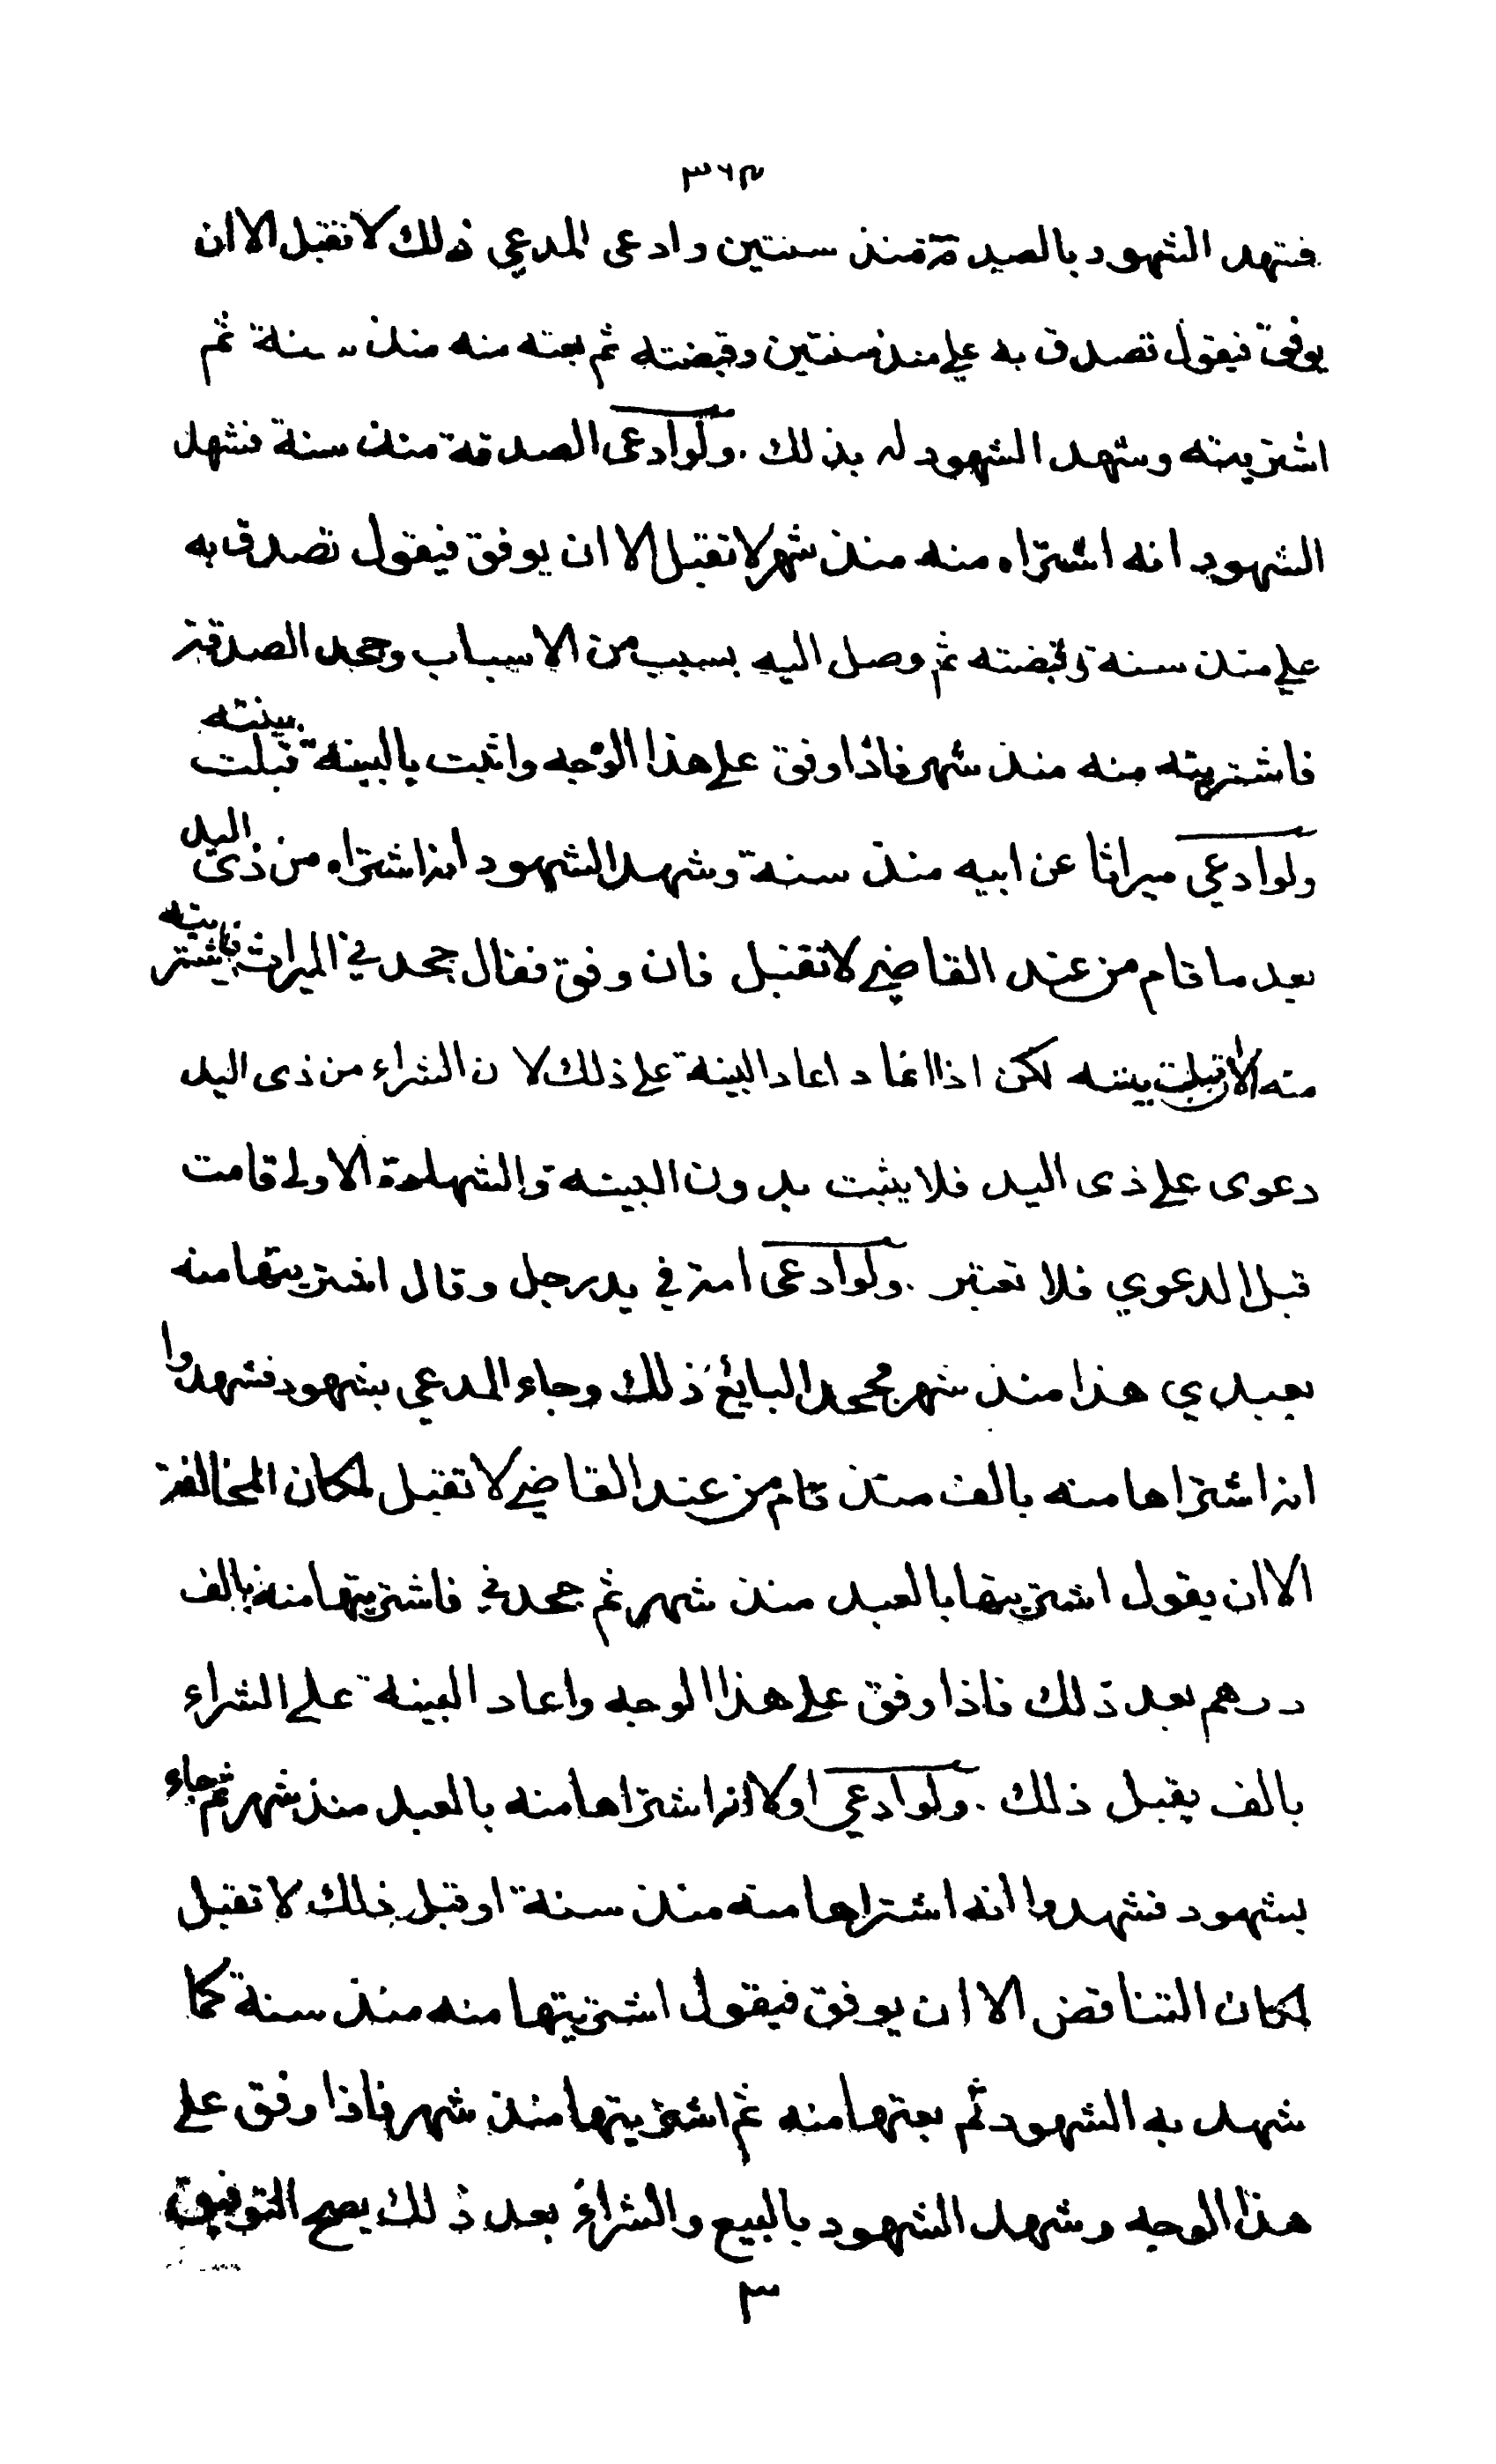 ٣٦٣
فشهد الشهود بالصدقة منذ سنتين وادعى المدعي ذلك لا تقبل الا ان
يوفق فيقول تصدق به علي منذ سنتين وقبضته ثم بعته منه منذ سنة ثم
اشتريته وشهد الشهود له بذلك . ولو ادعى الصدقة منذ سنة فشهد
الشهود انه اشتراه منه منذ شهر لا تقبل الا ان يوفق فيقول تصدق به
علي منذ سنة وقبضته ثم وصل اليه بسبب من الاسباب وجحد الصدقة
فاشتريته منه منذ شهر فاذا وفق على هذا الوجه واثبت بالبينة قبلت بينته
ولو ادعى ميراثا عن ابيه منذ سنة وشهد الشهود انه اشتراه من ذي اليد
بعد ما قام من عند القاضي لا تقبل فان وفق فقال جحدني الميراث فاشتريته
منه الان قبلت بينته لكن اذا اعاد البينة على ذلك لان الشراء من ذى اليد
دعوى على ذى اليد فلا يثبت بدون البينة والشهادة الاولى قامت
قبل الدعوي فلا تعتبر . ولو ادعى امة في يد رجل وقال اشتريتها منه
بعبدي هذا منذ شهر فجحد البائع ذلك وجاء المدعي بشهود فشهدوا
انه اشتراها منه بالف منذ قام من عند القاضي لا تقبل لمكان المخالفة
الا ان يقول اشتريتها بالعبد منذ شهر ثم جحدني فاشتريتها منه بالف
درهم بعد ذلك فاذا وفق على هذا الوجه واعاد البينة على الشراء
بالف يقبل ذلك . ولو ادعى اولا انه اشتراها منه بالعبد منذ شهر ثم جاء
بشهود فشهدوا انه اشتراها منه منذ سنة او قبل ذلك لا تقبل
لمكان التناقض الا ان يوفق فيقول اشتريتها منه منذ سنة كما
شهد به الشهود ثم بعتها منه ثم اشتريتها منذ شهر فاذا وفق على
هذا الوجه وشهد الشهود بالبيع والشراء بعد ذلك يصح التوفيق
٣